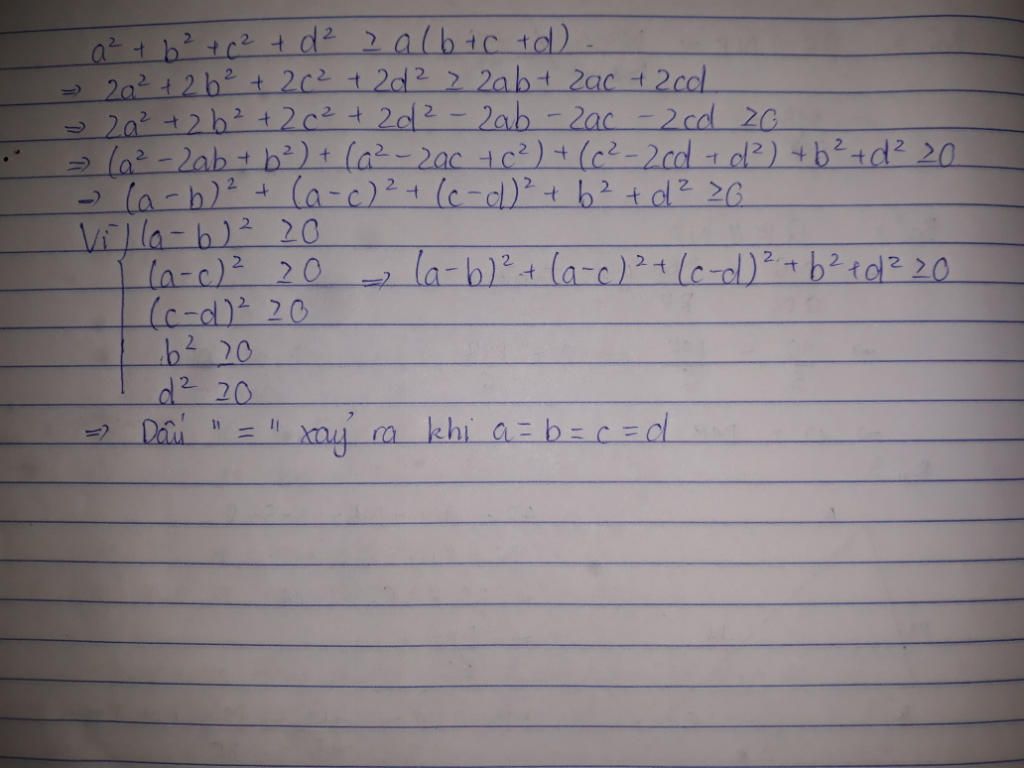 a² + b² + c² + d² ≥ a(b+c+d).
⇒ 2a² + 2b² + 2c² + 2d² ≥ 2ab + 2ac + 2cd
⇒ 2a² + 2b² + 2c² + 2d² - 2ab - 2ac - 2cd ≥ 0
⇒ (a² - 2ab + b²) + (a² - 2ac + c²) + (c² - 2cd + d²) + b² + d² ≥ 0
→ (a-b)² + (a-c)² + (c-d)² + b² + d² ≥ 0
Vì (a-b)² ≥ 0
(a-c)² ≥ 0 ⇒ (a-b)² + (a-c)² + (c-d)² + b² + d² ≥ 0
(c-d)² ≥ 0
b² ≥ 0
d² ≥ 0
⇒ Dấu "=" xảy ra khi a = b = c = d